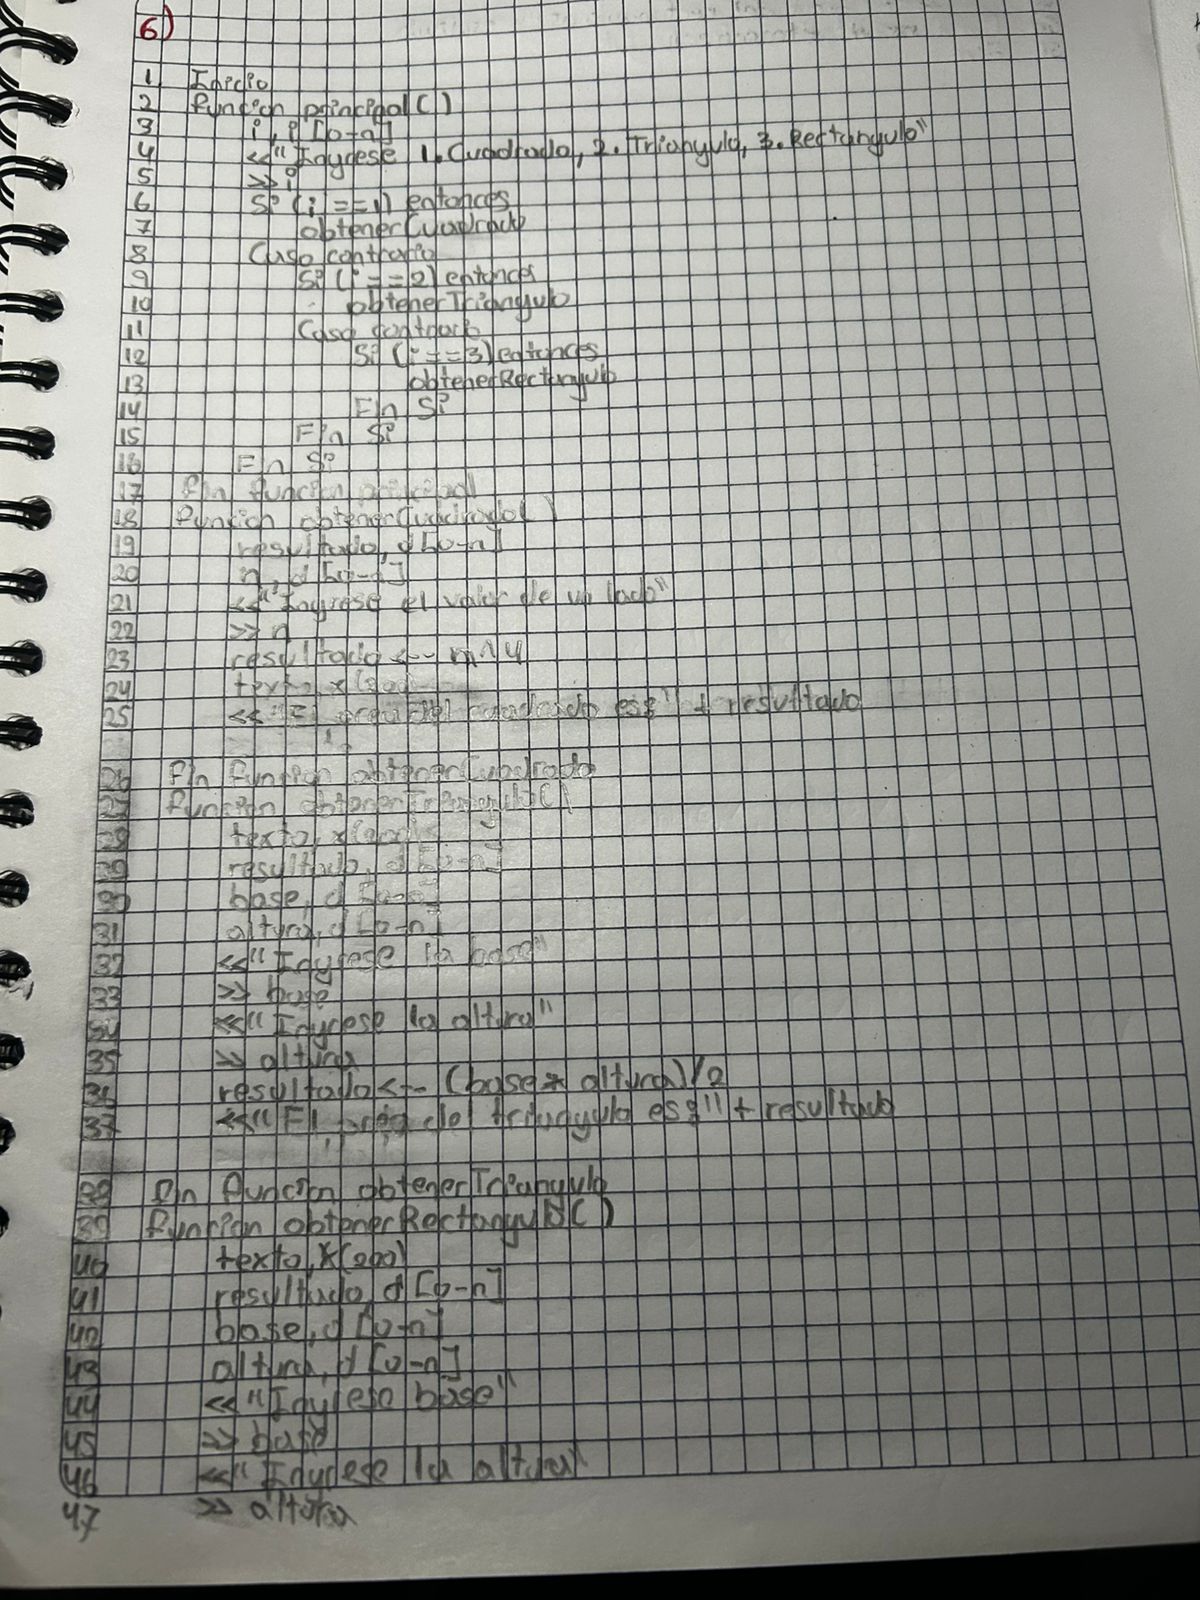 6)
1 Inicio
2 función principal()
3 i, i [0-n]
4 <<"Ingrese 1. Cuadrado, 2. Triangulo, 3. Rectangulo"
5 >> i
6 Si (i==1) entonces
7 obtenerCuadrado
8 Caso contrario
9 Si (i==2) entonces
10 obtenerTriangulo
11 Caso contrario
12 Si (i==3) entonces
13 obtenerRectangulo
14 Fin Si
15 Fin Si
16 Fin Si
17 fin funcion principal
18 funcion obtenerCuadrado()
19 resultado, d [0-n]
20 n, d [0-n]
21 <<"Ingrese el valor de un lado"
22 >> n
23 resultado <-- n^4
24 texto, x(200)
25 <<"El area del cuadrado es:" + resultado
26 fin funcion obtenerCuadrado
27 funcion obtenerTriangulo()
28 texto, x(200)
29 resultado, d [0-n]
30 base, d [0-n]
31 altura, d [0-n]
32 <<"Ingrese la base"
33 >> base
34 <<"Ingrese la altura"
35 >> altura
36 resultado <-- (base * altura)/2
37 <<"El area del triangulo es:" + resultado
38 fin funcion obtenerTriangulo
39 funcion obtenerRectangulo()
40 texto, X(200)
41 resultado, d [0-n]
42 base, d [0-n]
43 altura, d [0-n]
44 <<"Ingrese base"
45 >> base
46 <<"Ingrese la altura"
47 >> altura